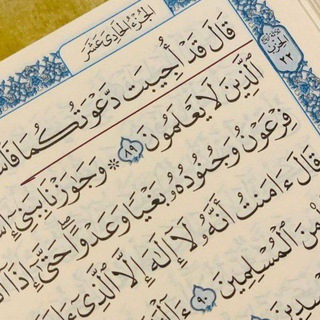 الجزء الحادي عشر
الحزب ٢٢
قَالَ قَدْ أُجِيبَت دَّعْوَتُكُمَا
الَّذِينَ لَا يَعْلَمُونَ ٨٩ ۞ وَجَٰوَزْنَا بِبَنِىٓ
فِرْعَوْنُ وَجُنُودُهُۥ بَغْيًا وَعَدْوًا ۖ حَتَّىٰٓ إِذَآ
قَالَ ءَامَنتُ أَنَّهُۥ لَآ إِلَٰهَ إِلَّا ٱلَّذِىٓ
مِنَ ٱلْمُسْلِمِينَ ٩٠